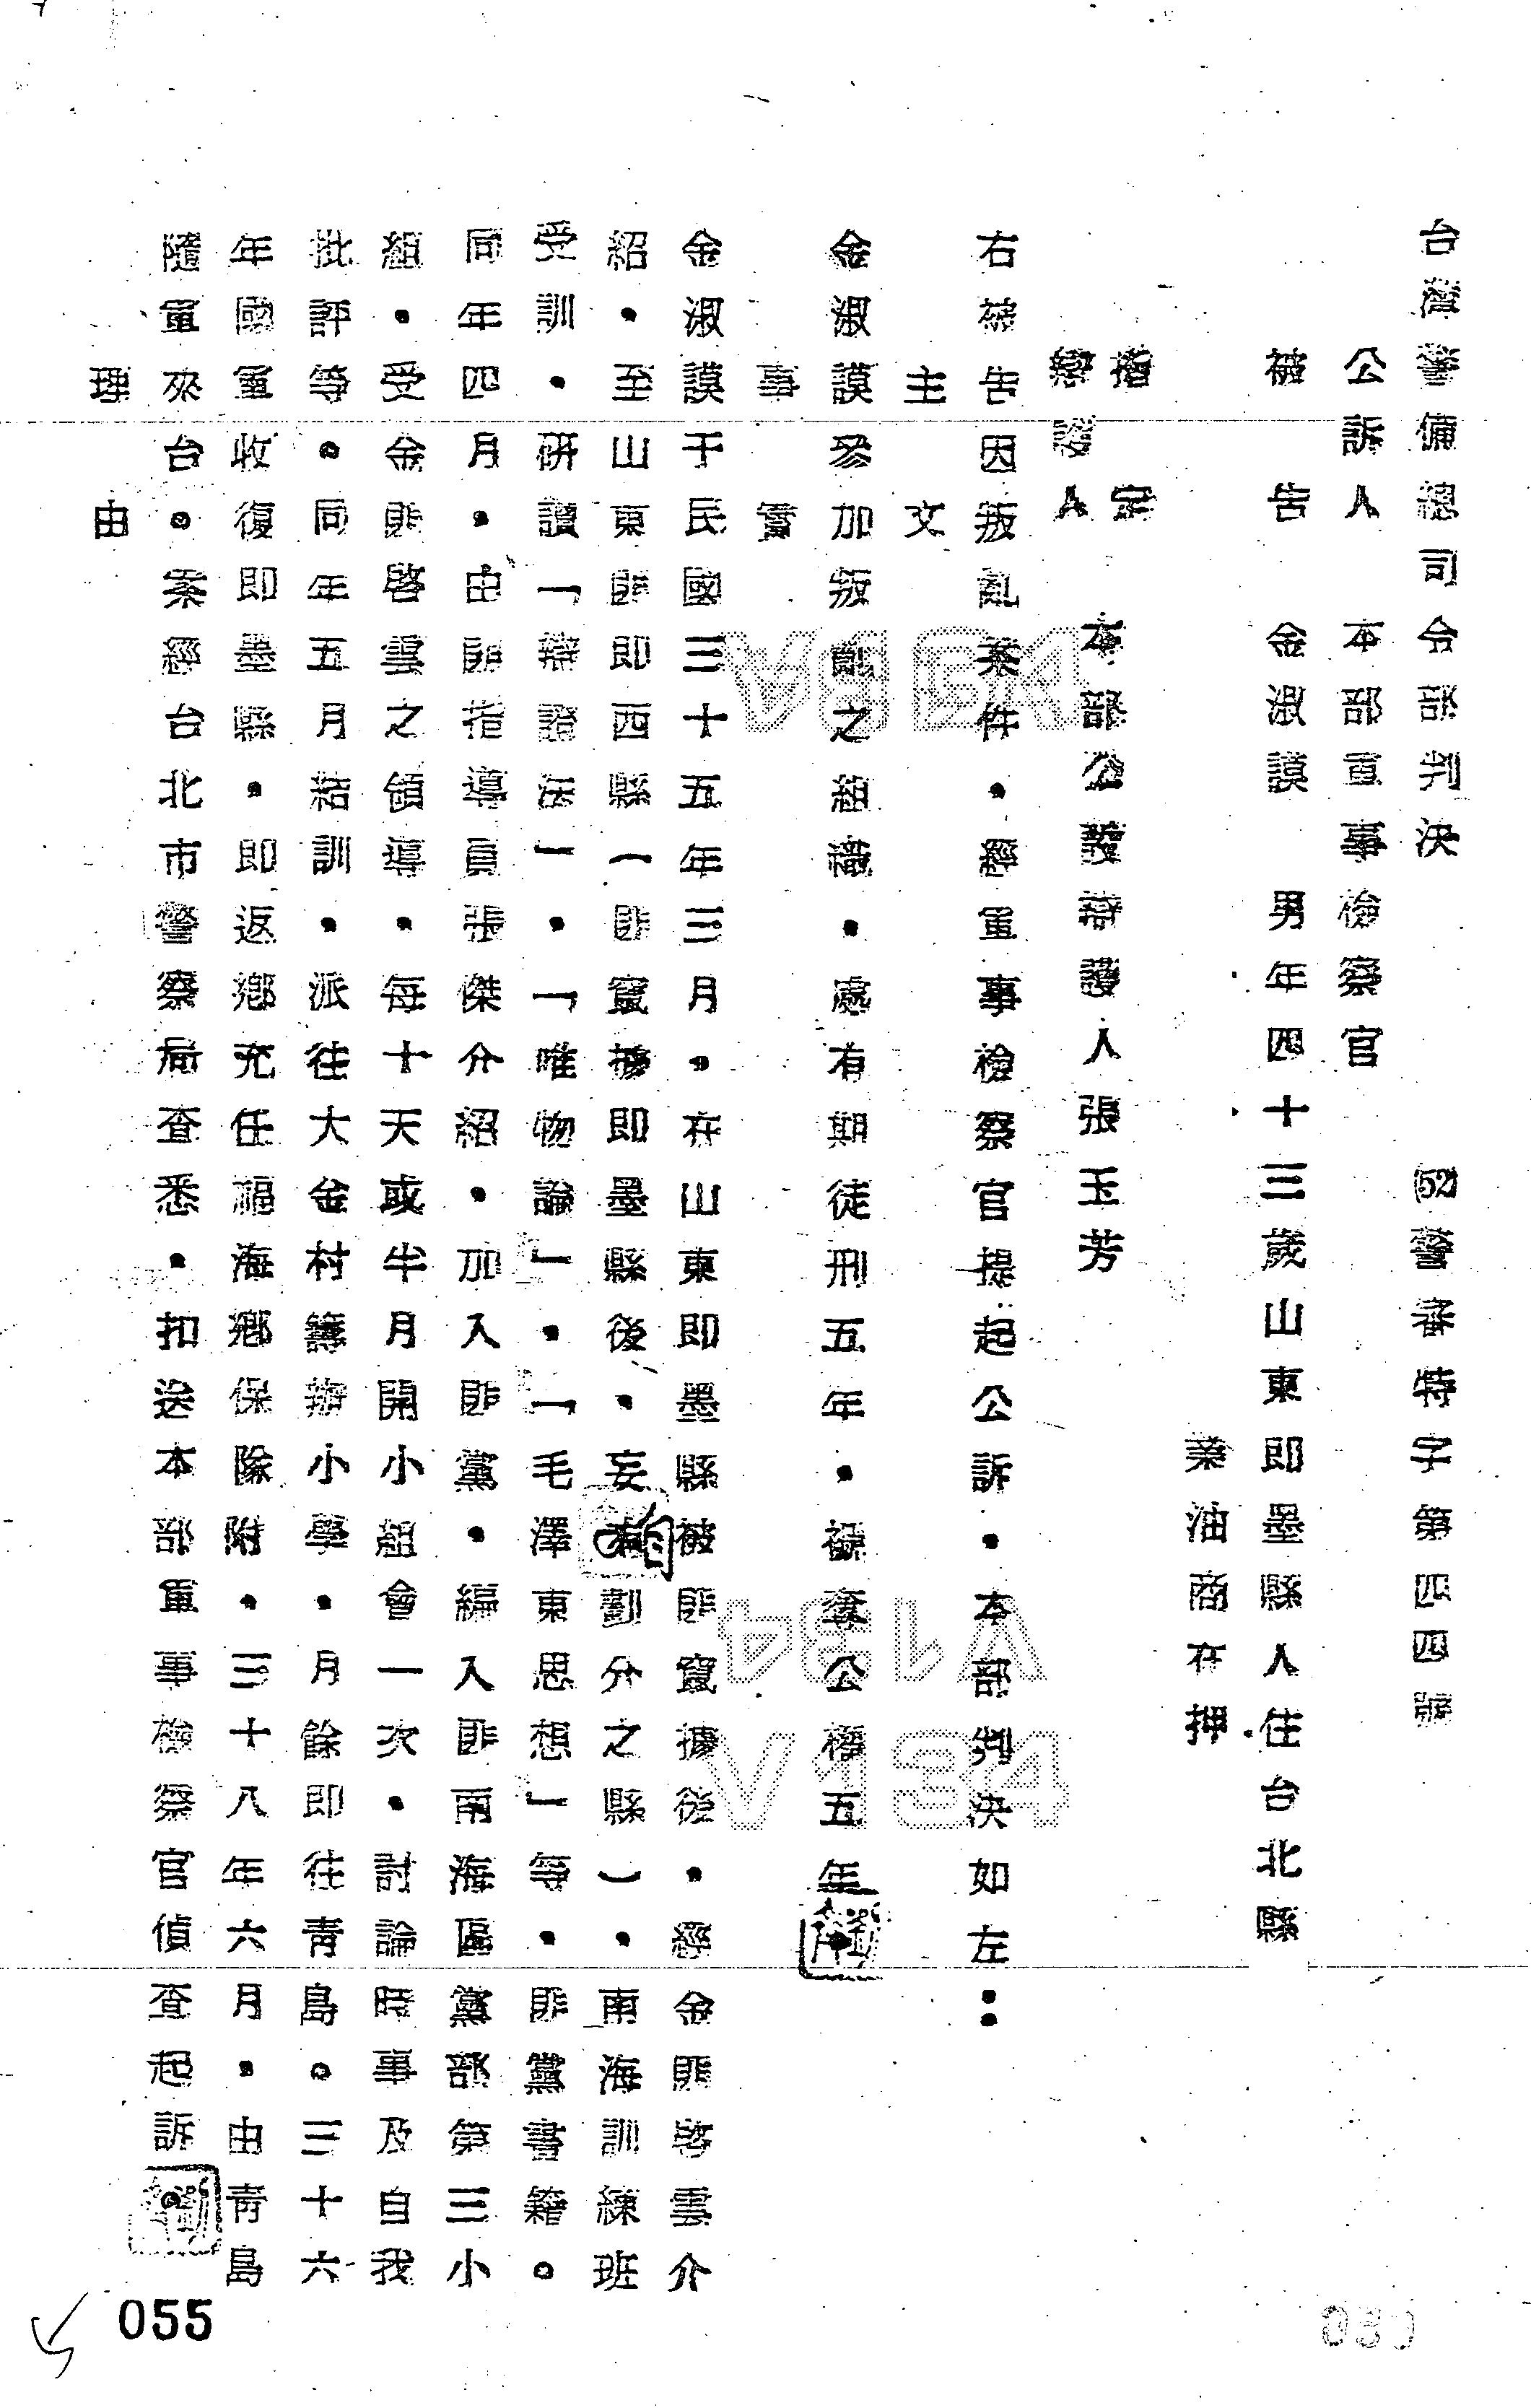 台灣警備總司令部判決 (52)警審特字第四四號
公訴人 本部軍事檢察官
被告 金淑謨 男年四十三歲山東即墨縣人住台北縣
業油商在押
指定
辯護人 本部公設辯護人張玉芳
右被告因叛亂案件，經軍事檢察官提起公訴，本部判決如左：
主文
金淑謨參加叛亂之組織，處有期徒刑五年，褫奪公權五年。
事實
金淑謨于民國三十五年三月，在山東即墨縣被匪竄據後，經金匪啓雲介
紹，至山東匪即西縣（匪竄擾即墨縣後，妄劃分之縣），南海訓練班
受訓，研讀「辯證法」，「唯物論」，「毛澤東思想」等，匪黨書籍。
同年四月，由匪指導員張傑介紹，加入匪黨，編入匪南海區黨部第三小
組，受金匪啓雲之領導，每十天或半月開小組會一次，討論時事及自我
批評等。同年五月結訓，派往大金村籌辦小學，月餘即往青島。三十六
年國軍收復即墨縣，即返鄉充任福海鄉保隊附，三十八年六月，由青島
隨軍來台。案經台北市警察局查悉，扣送本部軍事檢察官偵查起訴。
理由
V134
V134
055